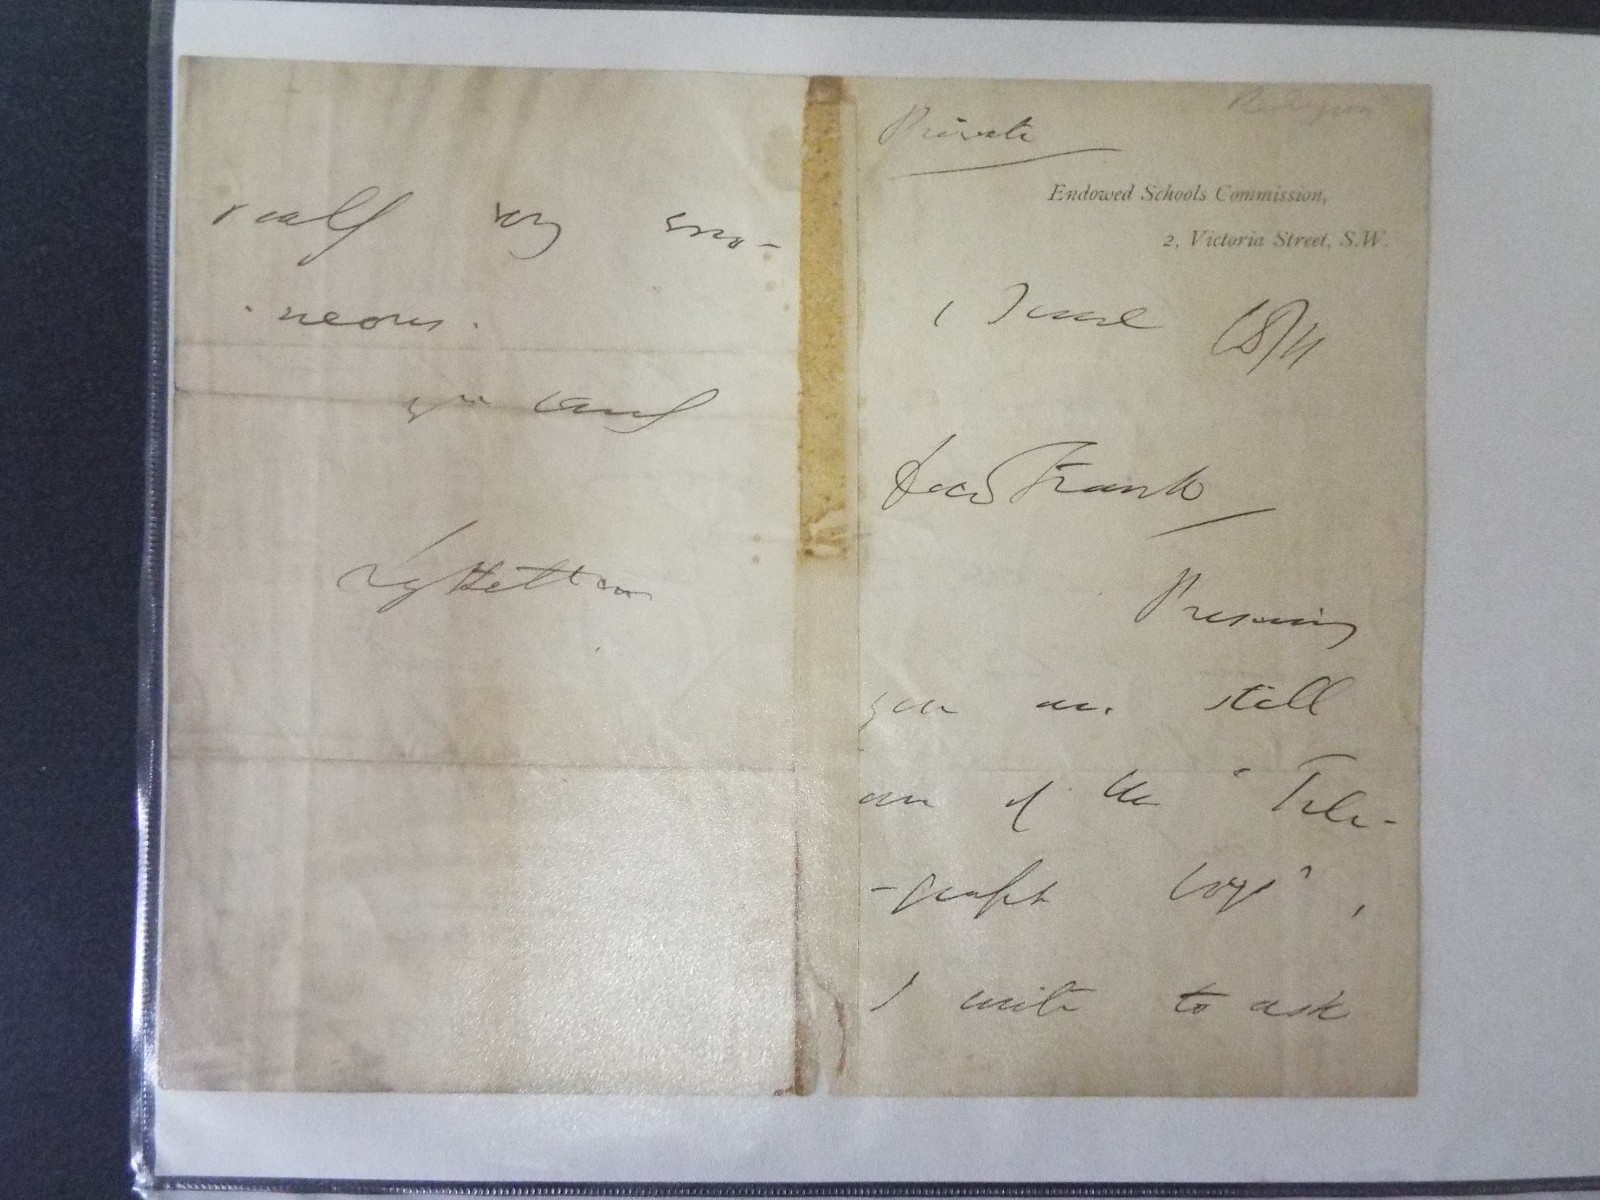 Private
Endowed Schools Commission,
2, Victoria Street, S.W.
1 June 1871
Dear Frank
Presuming
you are still
one of the "Tele-
-graph boys",
I write to ask
really very erro-
-neous.
yrs
Lyttelton